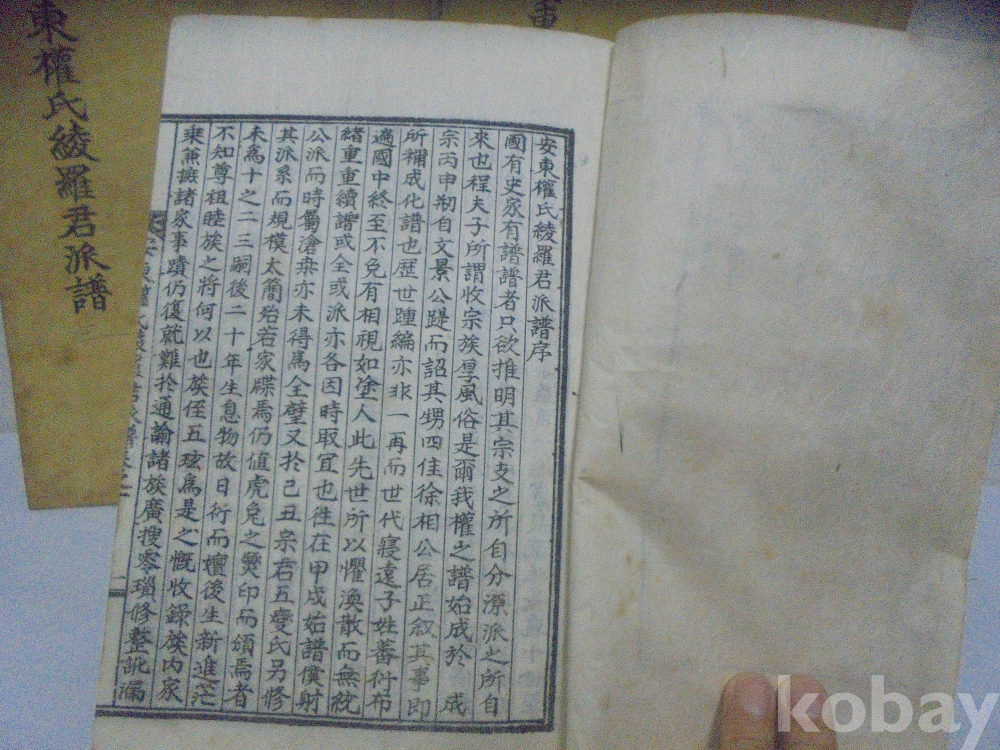 安東權氏綾羅君派譜序
國有史家有譜譜者只欲推明其宗支之所自分源派之所自
來也程夫子所謂收宗族厚風俗是爾我權之譜始成於 成
宗丙申刱自文景公踶而詔其甥四佳徐相公居正叙其事即
所稱成化譜也歷世踵編亦非一再而世代寢遠子姓蕃衍布
遍國中終至不免有相視如塗人此先世所以懼渙散而無統
緖重重續譜或全或派亦各因時取冝也徃在甲戌始譜僕射
公派而時屬滄桒亦未得爲全璧又於己丑宗君五變氏另修
其派系而規模太簡殆若家牒焉仍値虎兔之燹印而頒焉者
未爲十之二三嗣後二十年生息物故日衍而嬗後生新進茫
不知尊祖睦族之將何以也族侄五玹爲是之慨收錄族内家
乘兼摭諸家事蹟仍復就難於通論諸族廣搜零瑣修整訛漏
東權氏綾羅君派譜
kobay